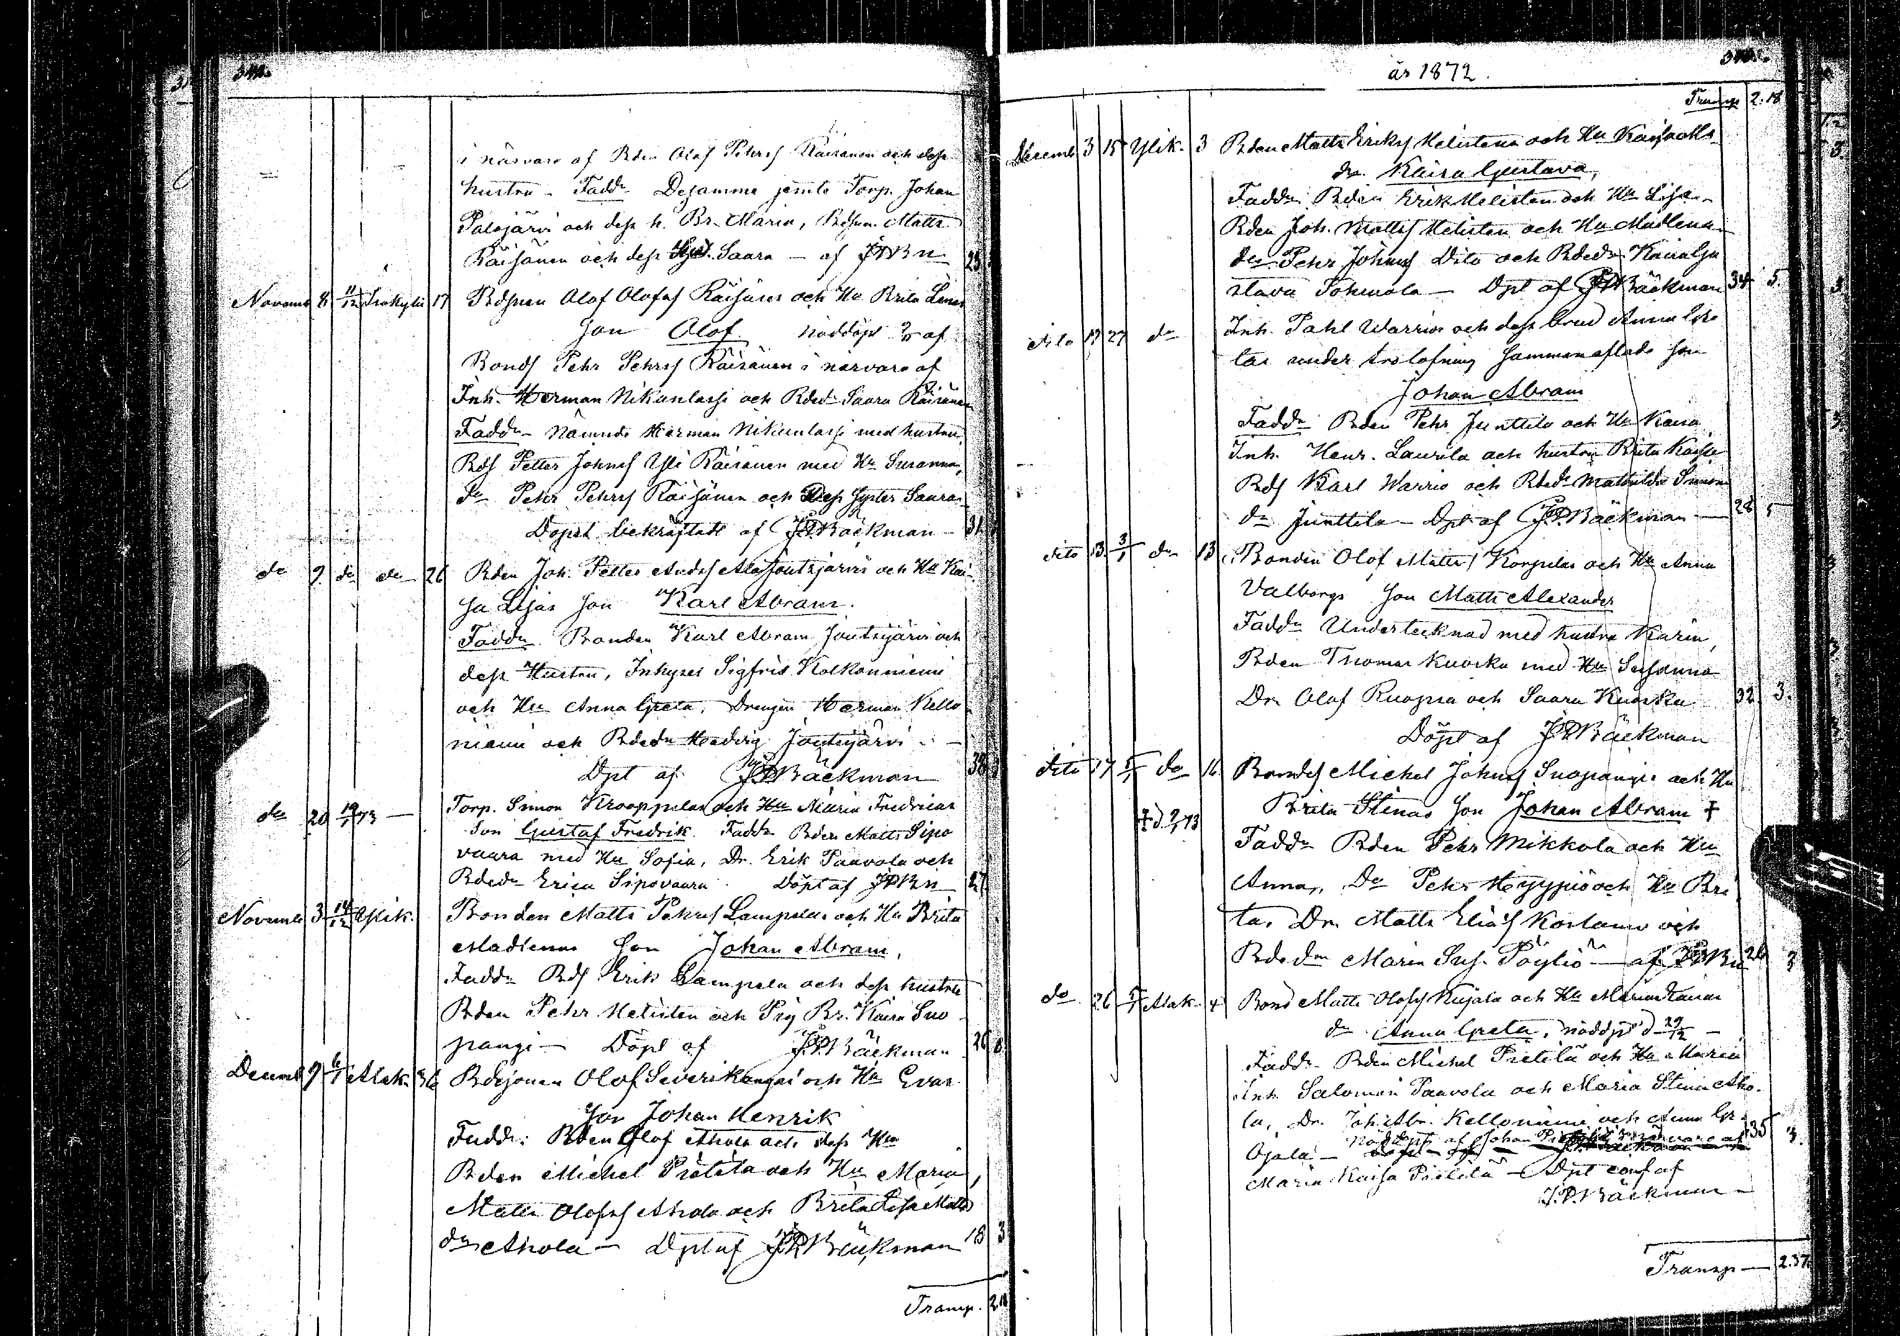 i närvaro af Bden Olof Pehrsş Räisänen och dess
hustru - Faddr Desamma jemte Torp. Johan
Palojärvi och dess h. Br. Maria, Matts
Räisänen och dess Saara - af JPBn 25
Novemb 8 11/12 17 Olof Olofss Räisänen och Hu Brita
Son Olof nöddöpt af
Bonds Pehr Pehrss Räisänen i närvaro af
Inh. Herman Nikunlassi och Bded Saara Räisänen
Faddr - Nämnde Herman Nikunlassi med hustru,
Bds Petter Johnss Yli Räisänen med Hu Susanna,
do Pehr Pehrss Räisänen och Dess syster Saara
Dopet bekräftadt af JPBäckman - 31
do 9 do do 26 Bden Joh. Petter Andss Ala Joutsijärvis och Hu Kai
sa Lisas son Karl Abram.
Faddr Bonden Karl Abram Joutsijärvi och
dess Hustru, Inhyses Sigfrid Kalkonniemi
och Hu Anna Greta, Drengen Herman Kello
niemi och Bdedr Hedvig Joutsijärvi -
Dpt af JPBäckman 38
do 20 19/1 73 - Torp. Simon Krooppelas och Hu Maria Fredricas
Son Gustaf Fredrik. Faddr Bden Matts Sipo
vaara med Hu Sofia, Dr. Erik Paavola och
Bdedr Erica Sipovaara. Döpt af JPBn 27
Novemb 3 14/12 Ylik. Bonden Matts Pehrss Lampelas och Hu Brita
Madlenas Son Johan Abram,
Faddr Bds Erik Lampela och dess hustru
Bden Pehr Helisten och Pig Br. Kaisa Suo
pangi - Döpt af J.P.Bäckman 26
Decemb 9 6/1 Alak. 36 Olof och Hu Evas
Son Johan Henrik
Faddr: Bden Olof Ahola och dess Hu
Bden Michel Pietilä och Hu Maria,
Matts Olofss Ahola och Brita Lisa Matts
dr Ahola - Dpt af JPBäckman 18 3
Transp. 2.18
år 1872.
Transp 2.18
Decemb 3 15 Ylik. 3 Bden Matts Eriks Helistens och Hu Kaisas
dr Kaisa Gustava,
Faddr Bden Erik Helisten och Hu Lisa,
Bden Joh. Mattss Helisten och Hu Madlena
do Pehr Johnss Dito och Bdedr Kaisa Gu
stava Pohinola - Dpt af JPBäckman 34 5.
dito 19 27 do Inh. Pahl Warrios och dess brud Anna Gre
tas under trolofning sammanaflade son
Johan Abram
Faddr Bden Pehr Junttila och Hu Kaisa
Inh. Henr. Laurila och hustru Brita Kaisa
Bds Karl Warrio och Bdedr Mathilda Simons
dr Junttila - Dpt af JPBäckman - 28 5
dito 13 3/1 do 13 Bonden Olof Mattss Korpelas och Hu Anna
Valborgs son Matts Alexander
Faddr Undertecknad med hustru Karin,
Bden Thomas Kuoska med Hu Susanna
Dr. Olof Ruopsa och Saara Kuoska 32 3.
Döpt af JPBäckman
dito 17 5/1 do 16 Bonds Michel Johnss Suopangis och Hu
† d. 9/1 73 Brita Stinas Son Johan Abram †
Faddr Bden Pehr Mikkola och Hu
Anna, Do Pehr Heyypiö och Hu Bri
ta, Dr. Matts Eliass Kostamo och
Bdedr Maria Sus. Pöyliö - af JPBn 26 3
do 26 5/1 Alak. 4 Bond Matts Olofss Kujala och Hu Maria
dr Anna Greta, nöddpt d 29/12 -
Faddr Bden Michel Pietilä och Hu Maria
Inh. Salomon Paavola och Maria Stina Aho
la, Dr. Joh. Abr. Kelloniemi och Anna Gr.
Ojala - Nöddöpt af Johan i närvaro af 35 3.
Maria Kaisa Pietilä - Dpt conf af
J.P.Bäckman -
Transp - 2.37